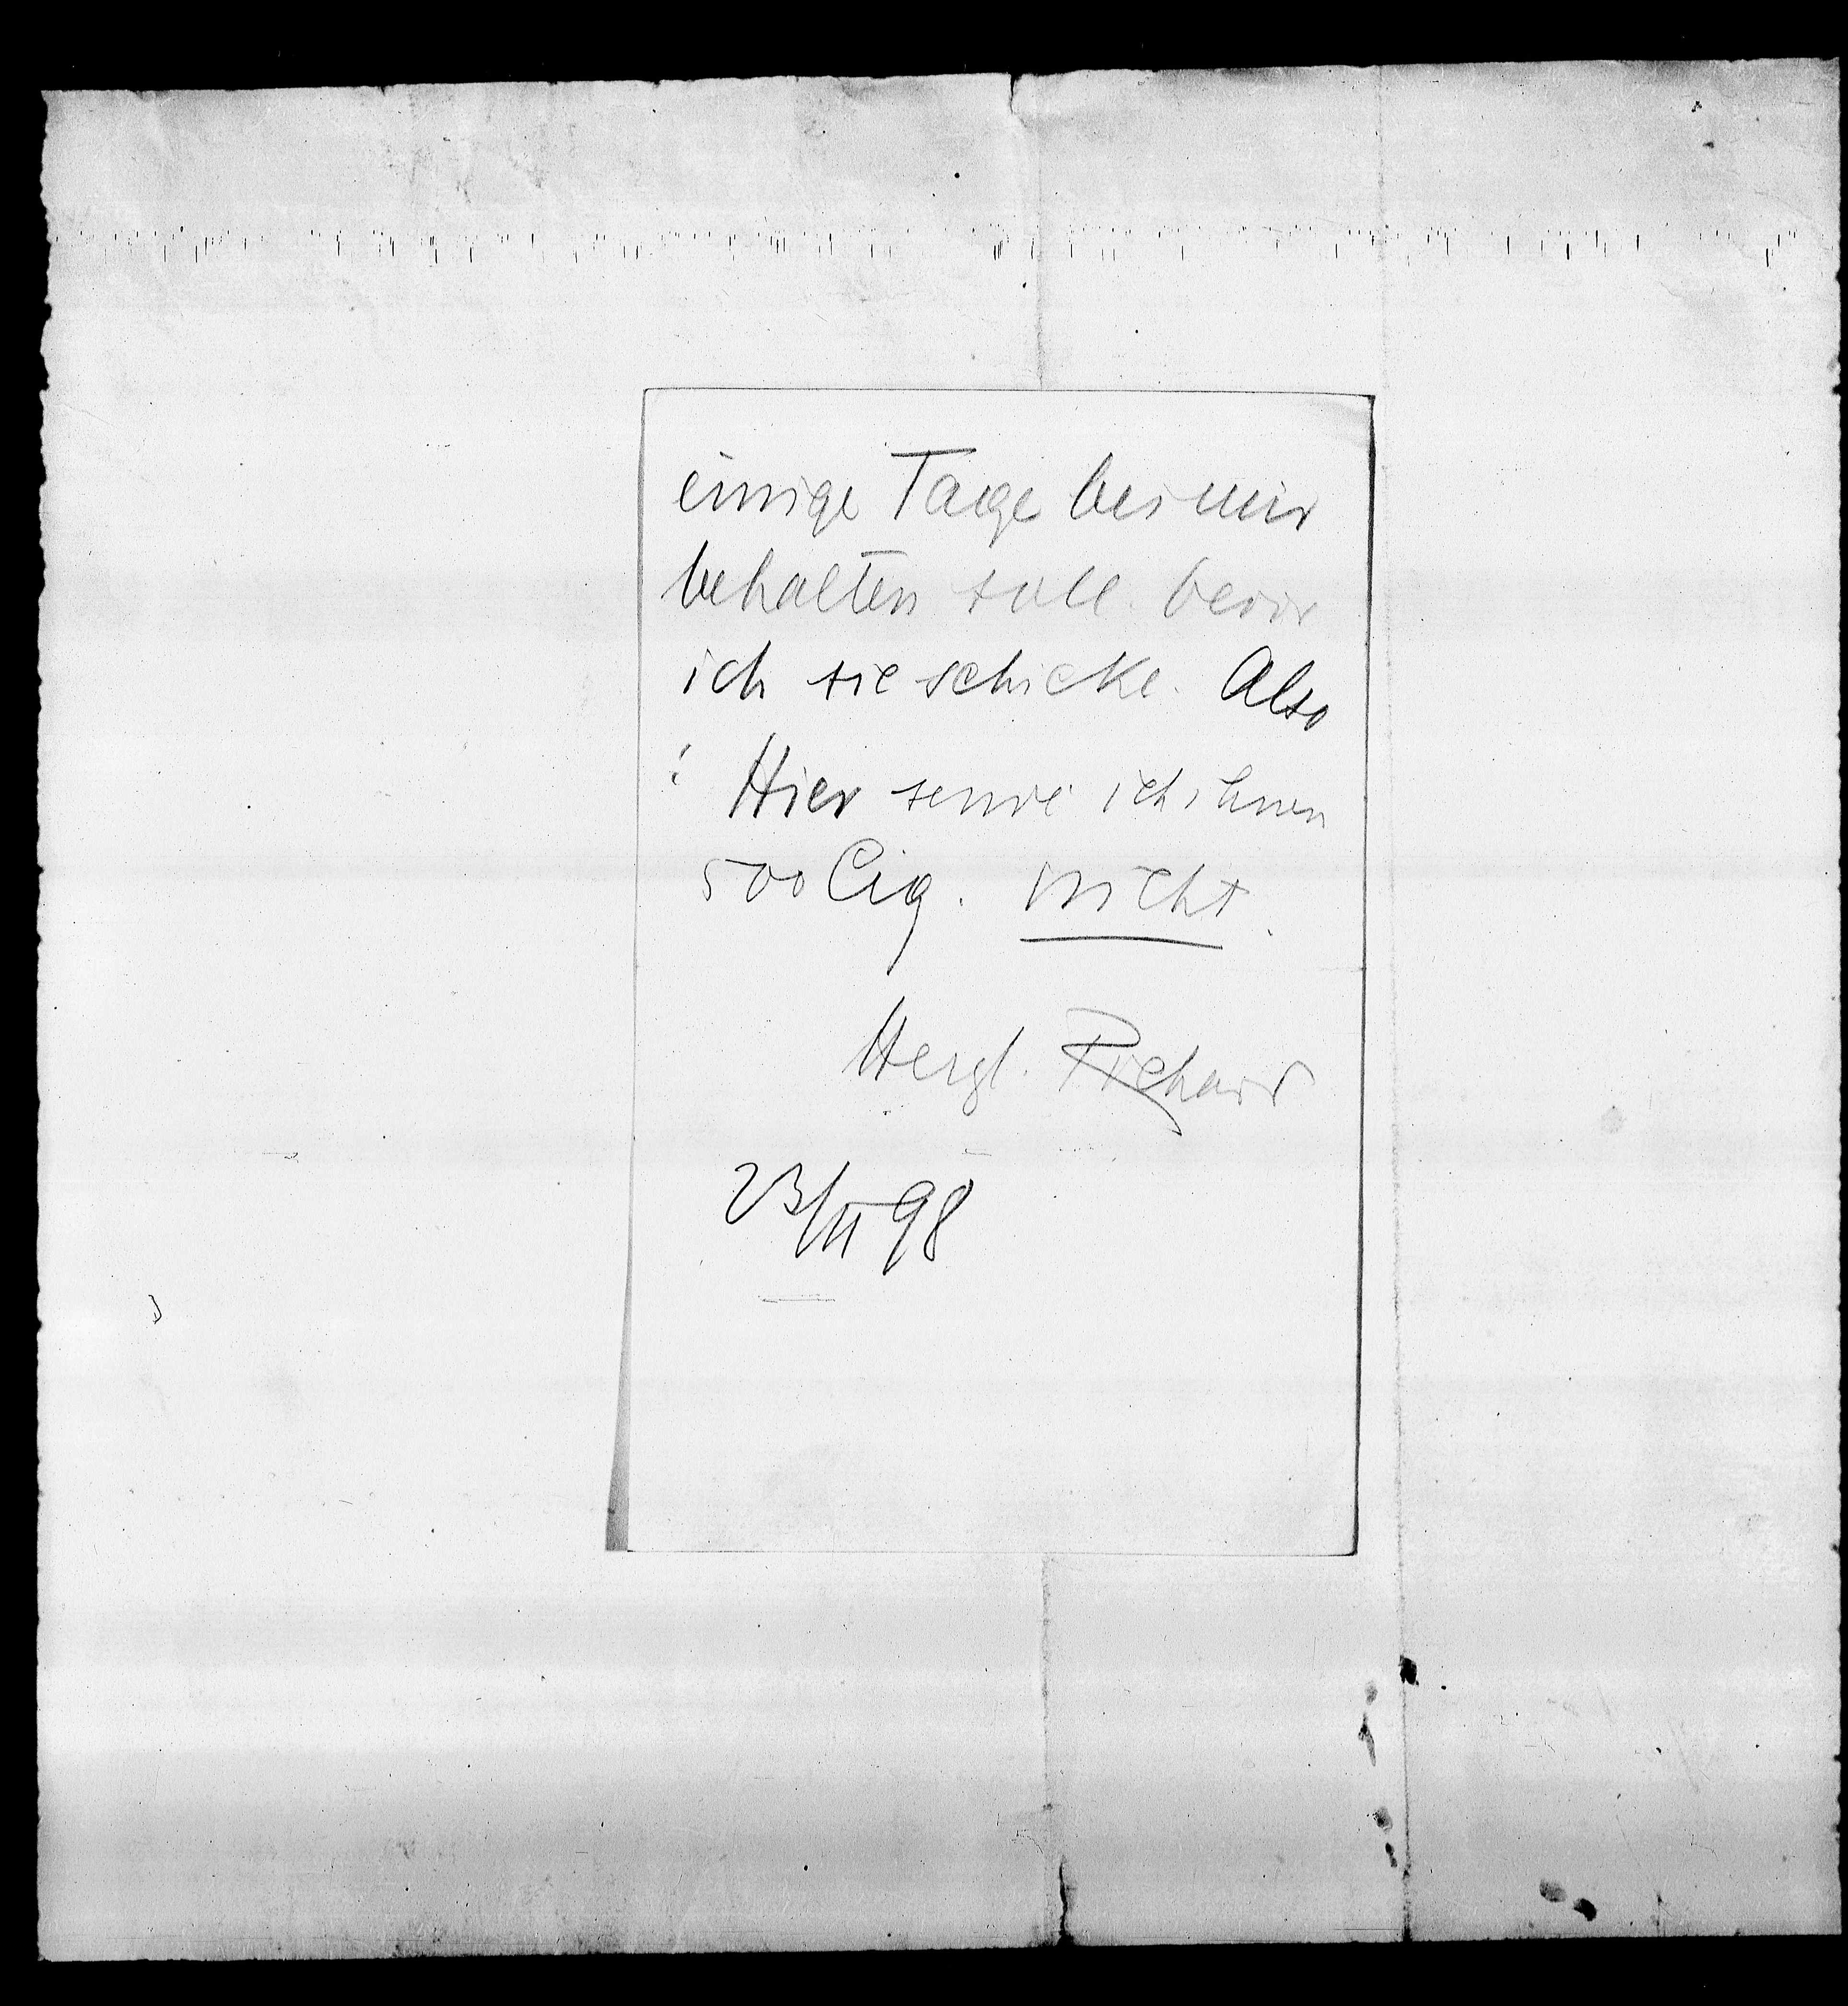 einige Tage bei mir
behalten soll bevor
ich sie schicke. Also
! Hier sende ich ihnen
500 Cig. nicht.
Herzl. Richard
23/II 98